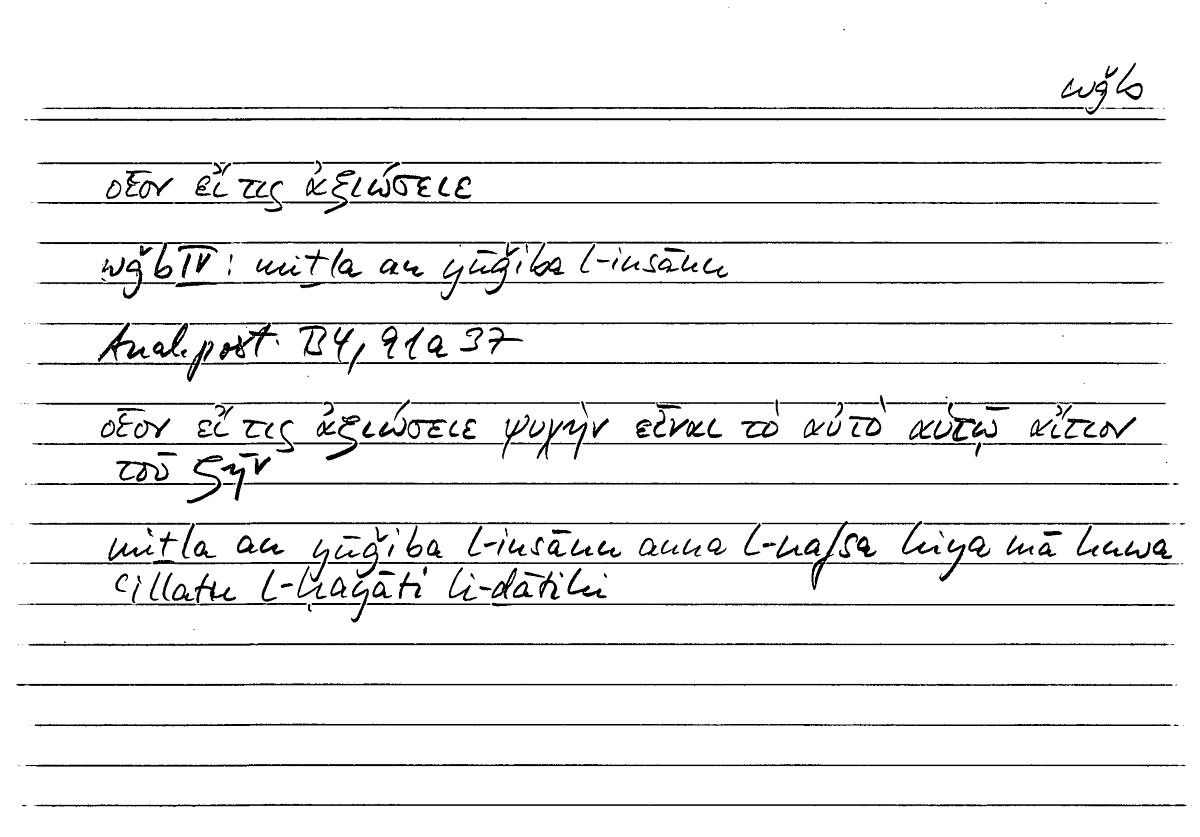 wǧb
οἷον εἴ τις ἀξιώσειε
wǧb IV : miṯla an yūǧiba l-insānu
Anal. post. B4, 91a 37
οἷον εἴ τις ἀξιώσειε ψυχὴν εἶναι τὸ αὐτὸ αὑτῷ αἴτιον
τοῦ ζῆν
miṯla an yūǧiba l-insānu anna l-nafsa hiya mā huwa
ʿillatu l-ḥayāti li-ḏātihi